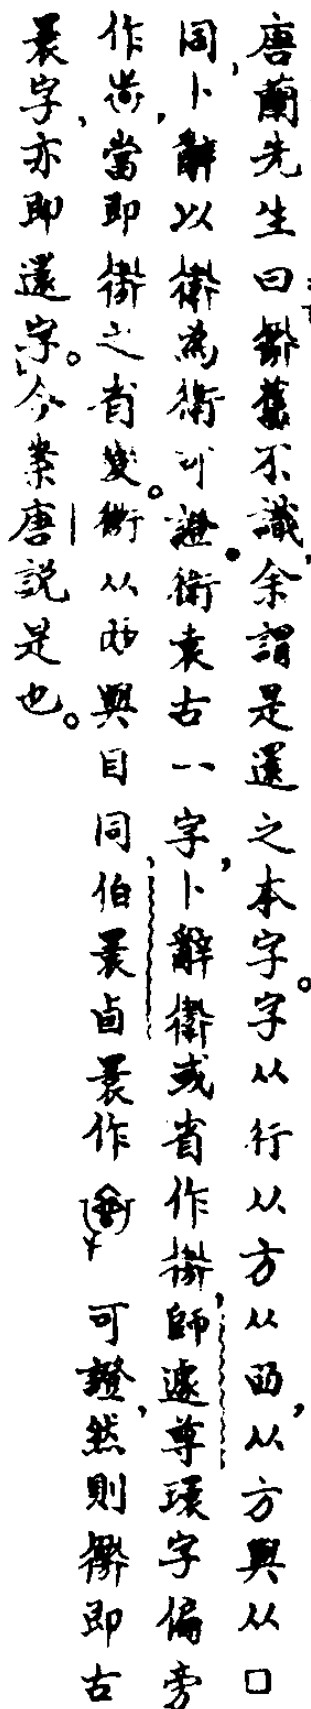 唐蘭先生曰舊不識,余謂是還之本字。字从行从方从,从方與从口
同,卜辭以為衛可證。衛袁古一字,卜辭或省作,師遽尊環字偏旁
作,當即之省變。从與目同,伯睘卣睘作可證,然則即古
睘字,亦即還字。今案唐說是也。